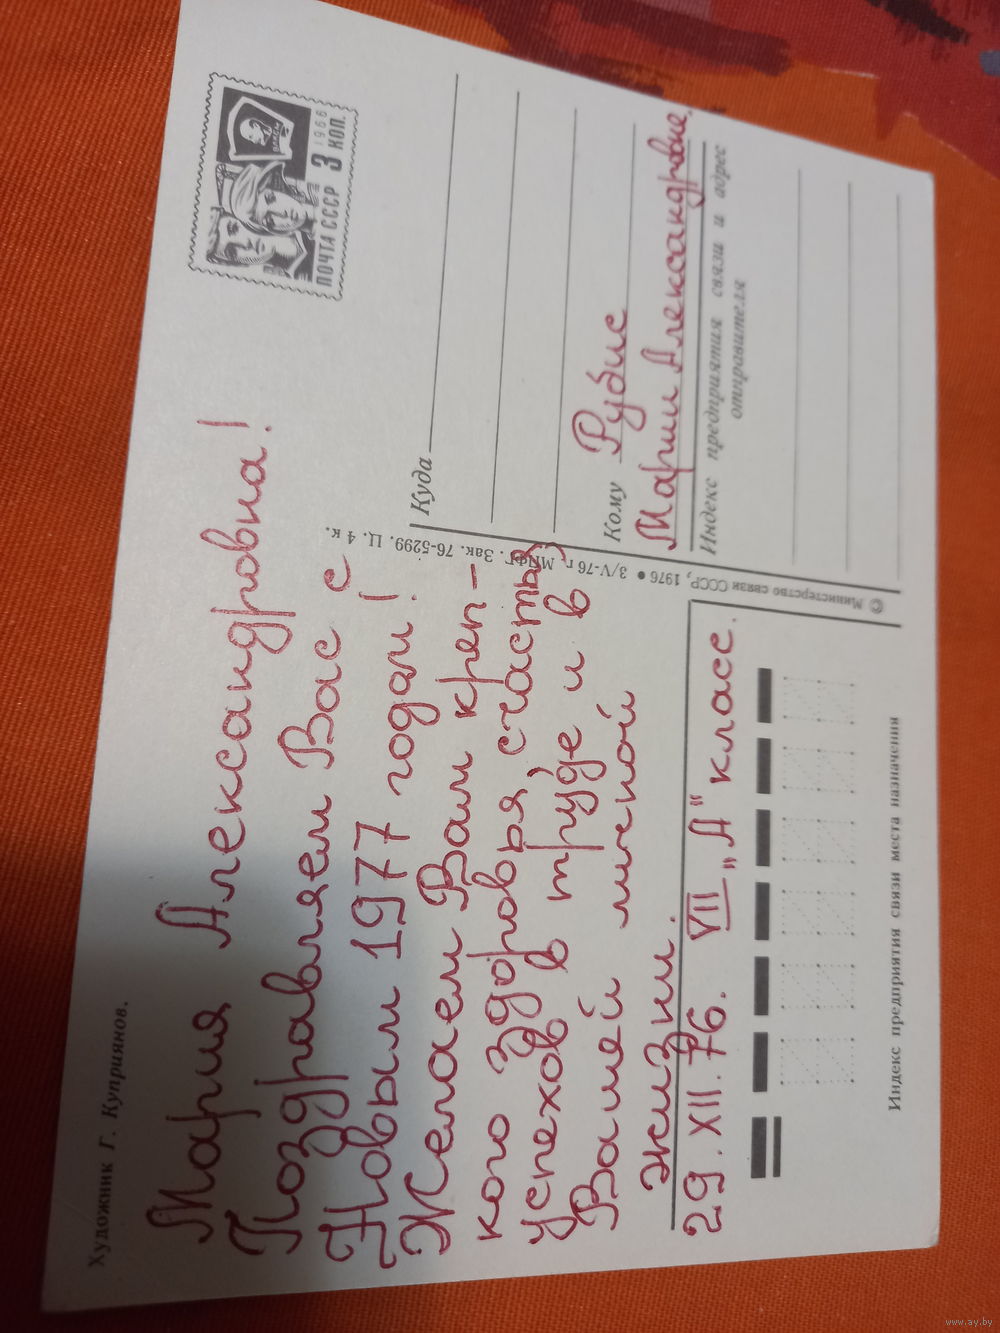 Художник Г. Куприянов.
Мария Александровна!
Поздравляем Вас с
Новым 1977 годом!
Желаем Вам креп-
кого здоровья, счастья,
успехов в труде и в
Вашей личной
жизни.
29. XII. 76. VII „А" класс.
Индекс предприятия связи места назначения
© Министерство связи СССР, 1976 ● 3/V-76 г. МПФГ. Зак. 76-5299. Ц. 4 к.
1966
ПОЧТА СССР 3 КОП.
Куда
Кому Рубис
Марии Александровне.
Индекс предприятия связи и адрес
отправителя
www.ay.by